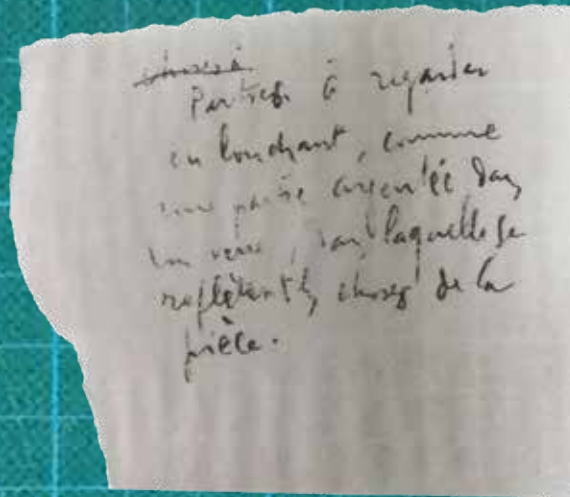 à regarder
en louchant, comme
une paire argentée, dans
un verre, dans laquelle se
reflètent les choses de la
pièce.